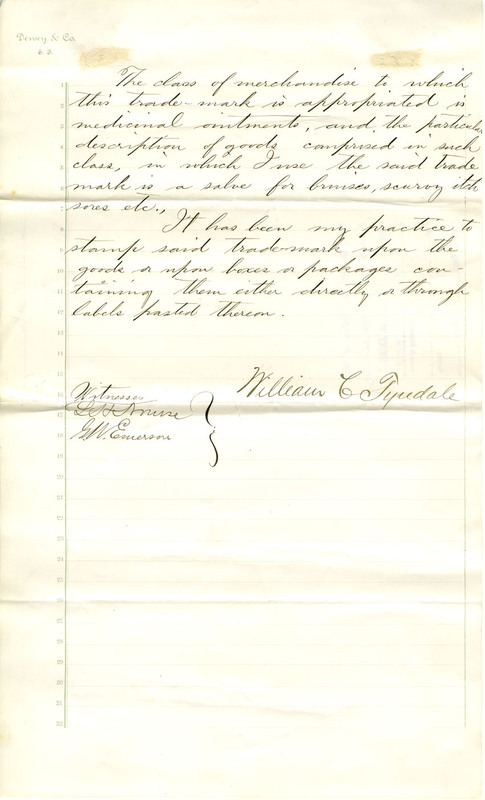 Dewey & Co.
S. F.
1
The class of merchandise to which
2
this trade-mark is appropriated is
3
medicinal ointments, and the particular
4
description of goods comprised in such
5
class, in which I use the said trade
6
mark is a salve for bruises, scurvy itch
7
sores etc.,
8
It has been my practice to
9
stamp said trade-mark upon the
10
goods or upon boxes or packages con-
11
taining them either directly or through
12
labels pasted thereon.
13
14
15
William C Tyndale
16
Witnesses
17
Nourse
18
G.W. Emerson
19
20
21
22
23
24
25
26
27
28
29
30
31
32